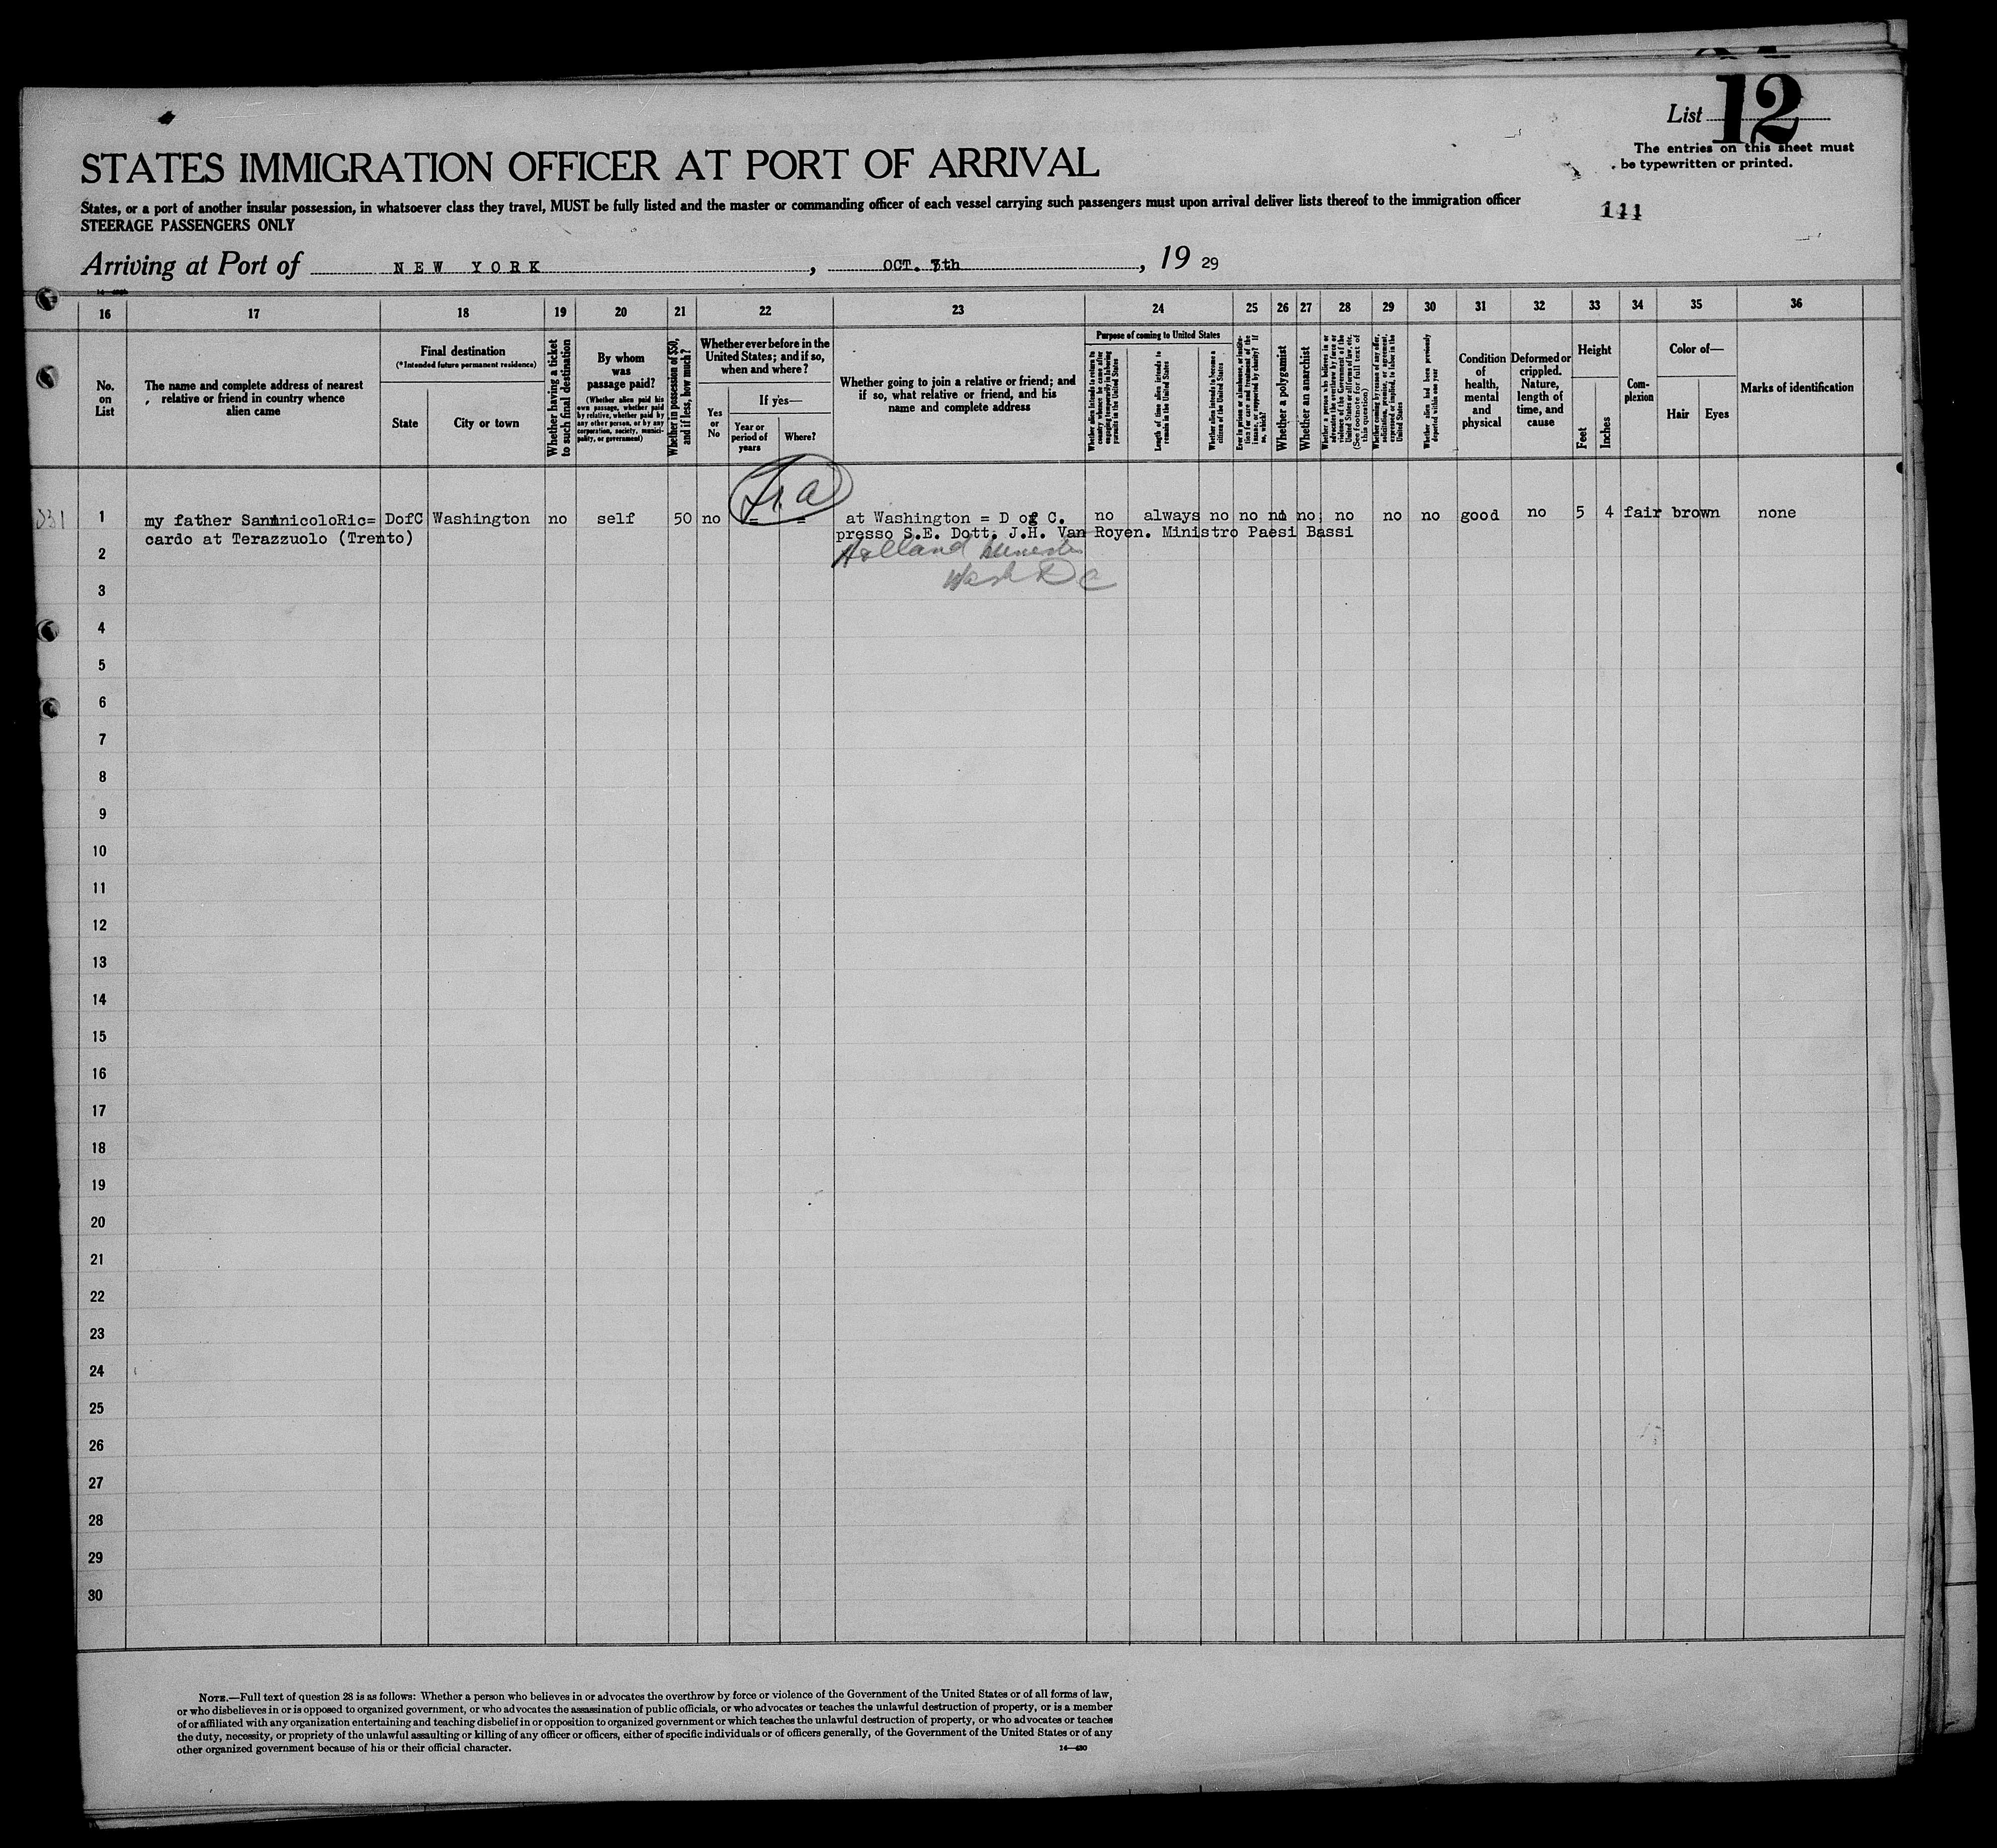 List 12
The entries on this sheet must
be typewritten or printed.
STATES IMMIGRATION OFFICER AT PORT OF ARRIVAL
States, or a port of another insular possession, in whatsoever class they travel, MUST be fully listed and the master or commanding officer of each vessel carrying such passengers must upon arrival deliver lists thereof to the immigration officer
STEERAGE PASSENGERS ONLY
141
Arriving at Port of NEW YORK, OCT. 7th, 19 29
16 17 18 19 20 21 22 23 24 25 26 27 28 29 30 31 32 33 34 35 36
No.
on
List
The name and complete address of nearest
relative or friend in country whence
alien came
Final destination
(*Intended future permanent residence)
State
City or town
Whether having a ticket
to such final destination
By whom
was
passage paid?
(Whether alien paid his
own passage, whether paid
by relative, whether paid by
any other person, or by any
corporation, society, munici-
pality, or government)
Whether in possession of $50,
and if less, how much?
Whether ever before in the
United States; and if so,
when and where?
Yes
or
No
If yes—
Year or
period of
years
Where?
Whether going to join a relative or friend; and
if so, what relative or friend, and his
name and complete address
Purpose of coming to United States
Whether alien intends to return to
country whence he came after
engaging temporarily in laboring
pursuits in the United States
Length of time alien intends to
remain in the United States
Whether alien intends to become a
citizen of the United States
Ever in prison or almshouse, or institu-
tion for care and treatment of
insane, or supported by charity? If
so, which?
Whether a polygamist
Whether an anarchist
Whether a person who believes in or
advocates the overthrow by force or
violence of the Government of the
United States or all forms of law, etc.
(See footnote for full text of
this question)
Whether coming by reason of any offer,
solicitation, promise, or agreement,
expressed or implied, to labor in the
United States
Whether alien had been previously
deported within one year
Condition
of
health,
mental
and
physical
Deformed or
crippled.
Nature,
length of
time, and
cause
Height
Feet
Inches
Com-
plexion
Color of—
Hair
Eyes
Marks of identification
1 my father SannicoloRic= DofC Washington no self 50 no = = at Washington = D of C. no always no no no no no no no good no 5 4 fair brown none
cardo at Terazzuolo (Trento) presso S.E. Dott. J.H. Van Royen. Ministro Paesi Bassi
2 Holland Minister
Wash D C
3
4
5
6
7
8
9
10
11
12
13
14
15
16
17
18
19
20
21
22
23
24
25
26
27
28
29
30
NOTE.—Full text of question 28 is as follows: Whether a person who believes in or advocates the overthrow by force or violence of the Government of the United States or of all forms of law,
or who disbelieves in or is opposed to organized government, or who advocates the assassination of public officials, or who advocates or teaches the unlawful destruction of property, or is a member
of or affiliated with any organization entertaining and teaching disbelief in or opposition to organized government or which teaches the unlawful destruction of property, or who advocates or teaches
the duty, necessity, or propriety of the unlawful assaulting or killing of any officer or officers, either of specific individuals or of officers generally, of the Government of the United States or of any
other organized government because of his or their official character.
14—430